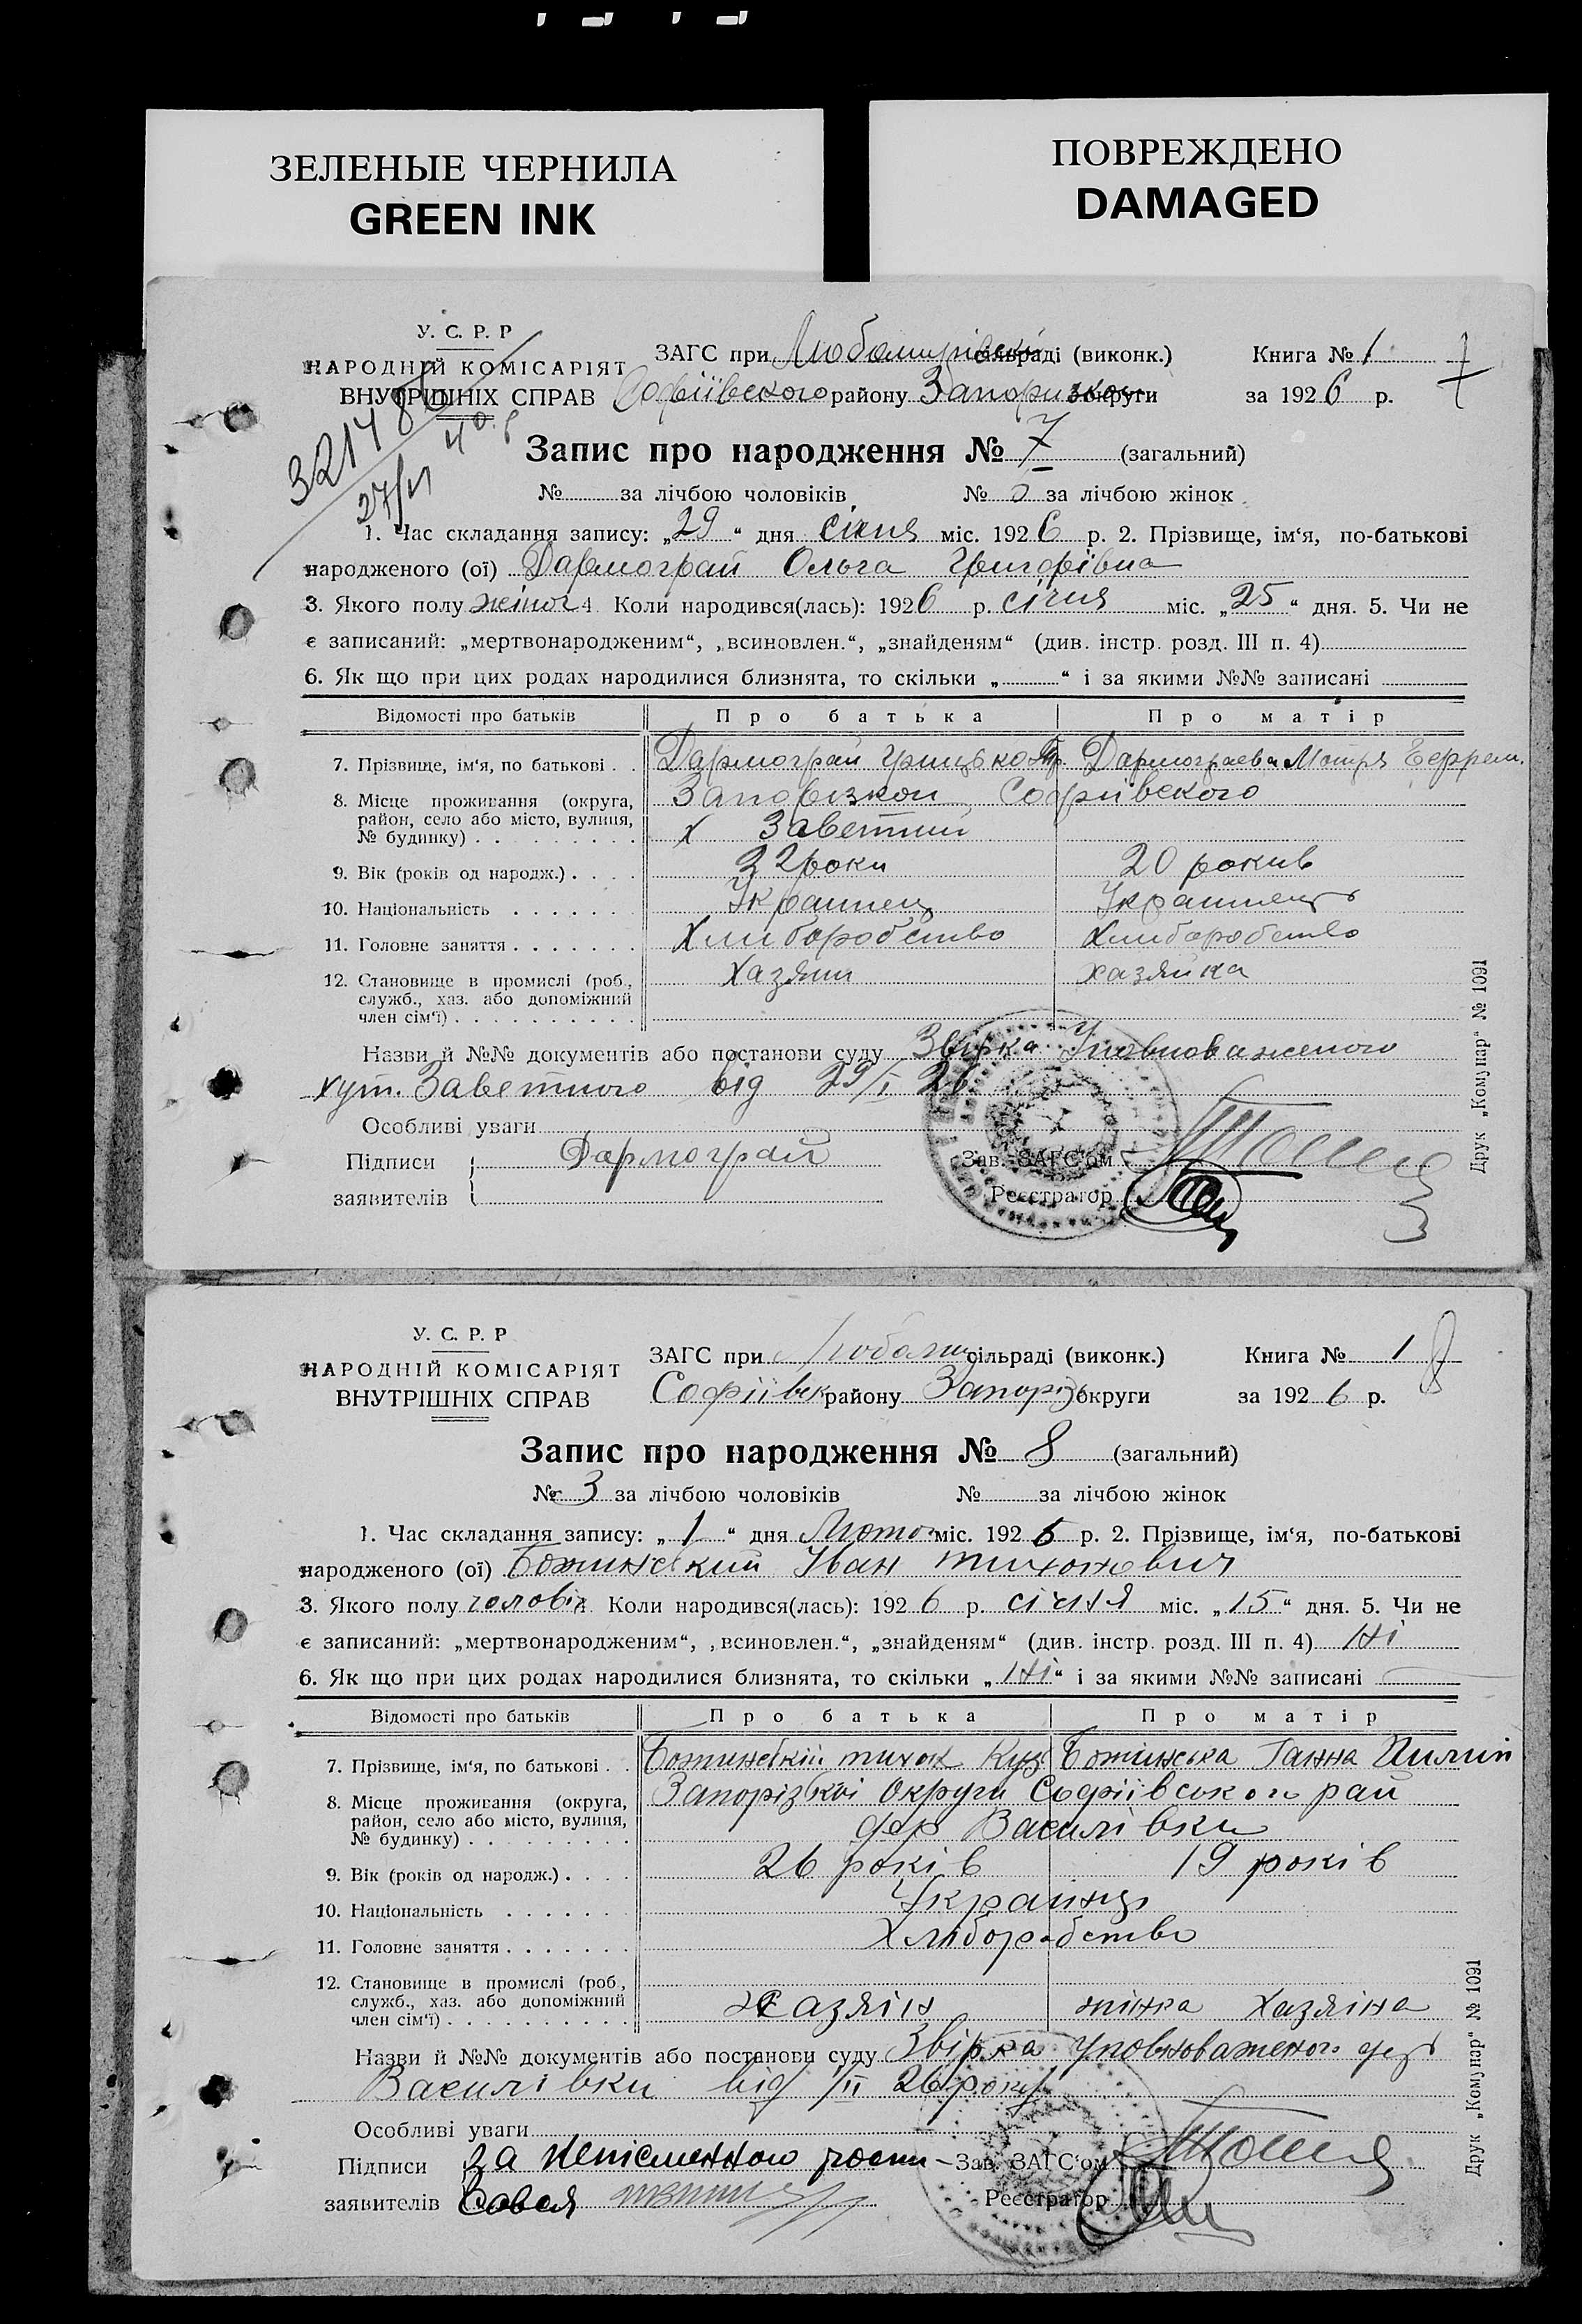 ЗЕЛЕНЫЕ ЧЕРНИЛА
GREEN INK
ПОВРЕЖДЕНО
DAMAGED
У. С. Р. Р
НАРОДНІЙ КОМІСАРІЯТ
ВНУТРІШНІХ СПРАВ
ЗАГС при Любомирівській сільраді (виконк.) Книга № 1 7
Софіївского району Запоризкои округи за 1926 р.
32148
27/VI 40 р
Запис про народження № 7 (загальний)
№ за лічбою чоловіків № за лічбою жінок
1. Час складання запису: „29“ дня січня міс. 1926 р. 2. Прізвище, ім‘я, по-батькові
народженого (ої) Дармограй Ольга Григорівна
3. Якого полу жіноч 4 Коли народився(лась): 1926 р. січня міс. „25“ дня. 5. Чи не
є записаний: „мертвонародженим“, „всиновлен.“, „знайденям“ (див. інстр. розд. III п. 4)
6. Як що при цих родах народилися близнята, то скільки „ “ і за якими №№ записані
Відомості про батьків Про батька Про матір
7. Прізвище, ім‘я, по батькові Дармограй Грицько Дармограева Мотря Ефрем.
8. Місце проживання (округа, Запорізкои Софиівского
район, село або місто, вулиця, х Заветний
№ будинку)
9. Вік (років од народж.) 32 роки 20 рокив
10. Національність Украинец Украинець
11. Головне заняття Хлиборобство Хлиборобство
12. Становище в промислі (роб., Хазяин хазяйка
служб., хаз. або допоміжний
член сім‘ї)
Назви й №№ документів або постанови суду Звірка Уповноваженого
хут. Заветного від 29/I 26
Особливі уваги
Підписи Дармограй Зав. ЗАГС‘ом
заявителів Реєстратор
Друк „Комунар“ № 1091
У. С. Р. Р
НАРОДНІЙ КОМІСАРІЯТ
ВНУТРІШНІХ СПРАВ
ЗАГС при Любоми сільраді (виконк.) Книга № 1 8
Софіївск району Запоріз округи за 1926 р.
Запис про народження № 8 (загальний)
№ 3 за лічбою чоловіків № за лічбою жінок
1. Час складання запису: „1“ дня Лютого міс. 1926 р. 2. Прізвище, ім‘я, по-батькові
народженого (ої) Божинський Іван Тихонович
3. Якого полу чоловік Коли народився(лась): 1926 р. січня міс. „15“ дня. 5. Чи не
є записаний: „мертвонародженим“, „всиновлен.“, „знайденям“ (див. інстр. розд. III п. 4) Ні
6. Як що при цих родах народилися близнята, то скільки „Ні“ і за якими №№ записані
Відомості про батьків Про батька Про матір
7. Прізвище, ім‘я, по батькові Божинский тихон Куз Божинська Ганна Пилип
8. Місце проживання (округа, Запорізкоі Округи Софіівського рай
район, село або місто, вулиця, Василівки
№ будинку)
9. Вік (років од народж.) 26 років 19 років
10. Національність Украінці
11. Головне заняття Хліборобство
12. Становище в промислі (роб.,
служб., хаз. або допоміжний Хазяін жінка Хазяіна
член сім‘ї)
Назви й №№ документів або постанови суду Звірка уповноваженого
Василівки від 1/II 26 року
Особливі уваги
Підписи За неписменного Зав. ЗАГС‘ом
заявителів Реєстратор
Друк „Комунар“ № 1091